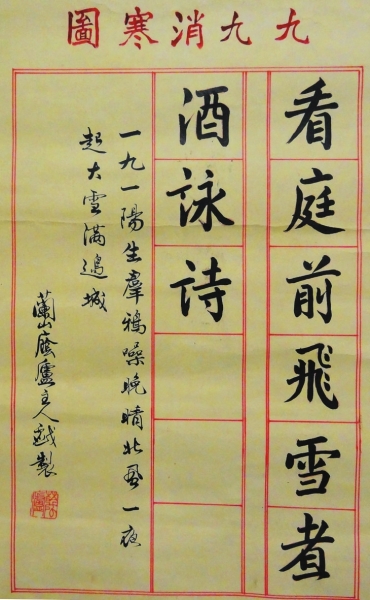 九九消寒圖
看庭前飛雪煮
酒詠詩
一九一陽生羣鴉噪晚晴北風一夜
起大雪滿邊城
蘭廬主人越製